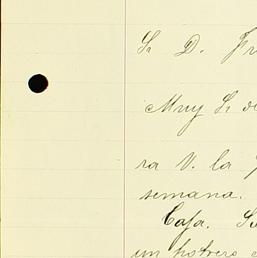 Sr D. Fr
Muy Sr de
ra V. la
semana.
Cafa. Se
un potrero